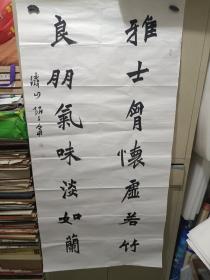 雅士曾懷虛若竹
良朋氣味淡如蘭